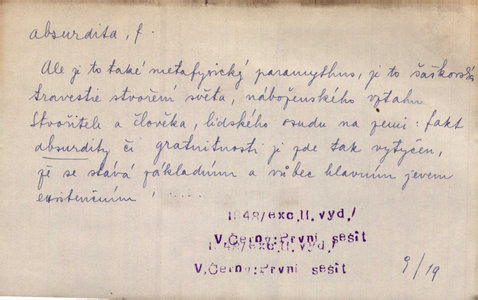 absurdita, f.
Ale je to také metafysický paramythus, je to šaškovská
travestie stvoření světa, náboženského vztahu
Stvořitele a člověka, lidského osudu na zemi: fakt
absurdity či gratuitnosti je zde tak vytyčen,
že se stává základním a vůbec hlavním jevem
existenčním
1948/exc.II.vyd./
V.Černý:První sešit
1948/exc.II.vyd./
V.Černý:První sešit
9/19